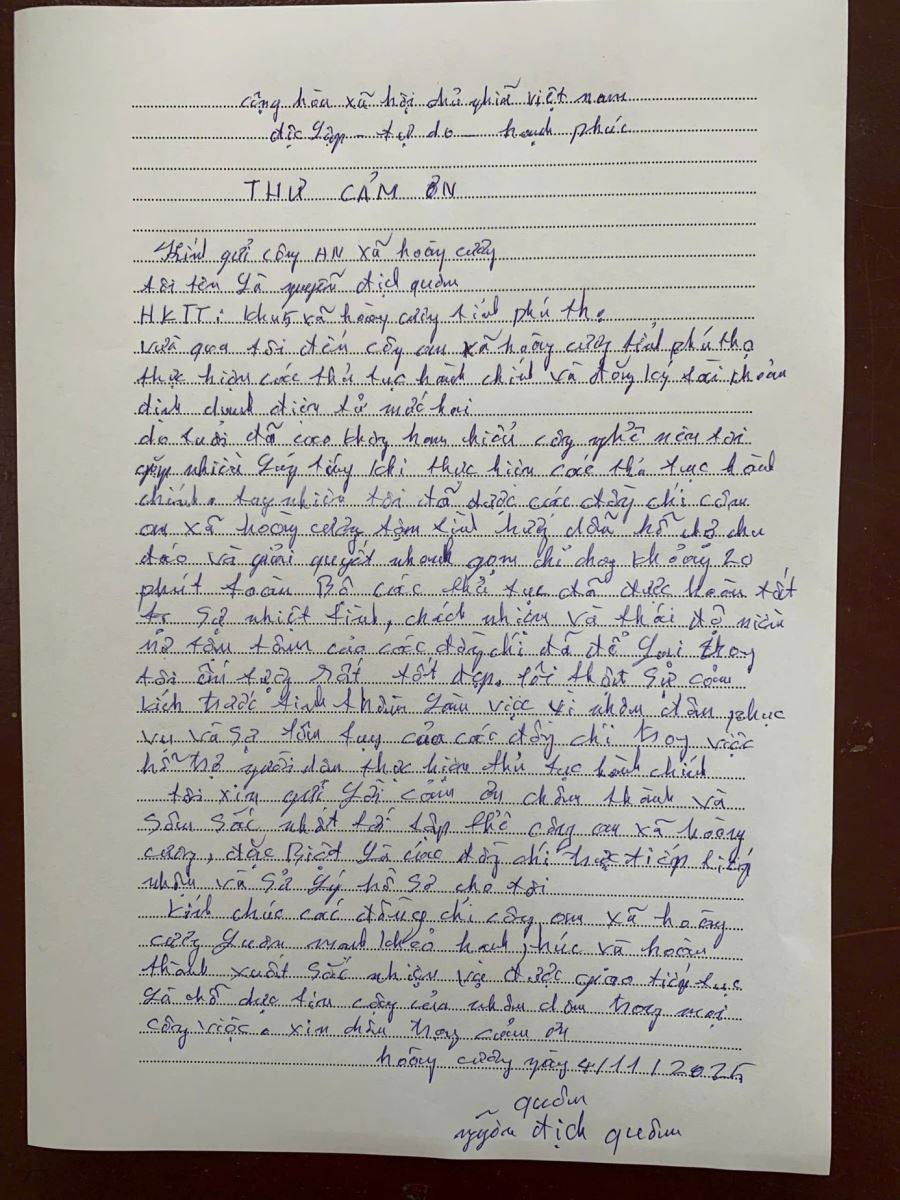 cộng hòa xã hội chủ nghĩa việt nam
độc lập - tự do - hạnh phúc
THƯ CẢM ƠN
kính gửi công AN xã hoàng cương
tôi tên là nguyễn địch quân
HKTT: khu 5 xã hoàng cương tỉnh phú thọ
vừa qua tôi đến công an xã hoàng cương tỉnh phú thọ
thực hiện các thủ tục hành chính và đăng ký tài khoản
định danh điện tử mức hai
do tuổi đã cao không ham hiểu công nghệ nên tôi
gặp nhiều lúng túng khi thực hiện các thủ tục hành
chính. tuy nhiên tôi đã được các đồng chí công
an xã hoàng cương tận tình hướng dẫn hỗ trợ chu
đáo và giải quyết nhanh gọn chỉ khoảng 20
phút toàn Bộ các thủ tục đã được hoàn tất
sự nhiệt tình, chách nhiệm và thái độ niềm
nở tận tâm của các đồng chí đã để lại trong
tôi ấn tượng rất tốt đẹp. tôi thật sự cảm
kích trước tinh thần làm việc vì nhân dân phục
vụ và sự tận tụy của các đồng chí trong việc
hỗ trợ người dân thực hiện thủ tục hành chính
tôi xin gửi lời cảm ơn chân thành và
sâu sắc nhất tới tập thể công an xã hoàng
cương, đặc Biệt là các đồng chí trực tiếp tiếp
nhận và sử lý hồ sơ cho tôi
kính chúc các đồng chí công an xã hoàng
cương luôn mạnh khỏe hạnh phúc và hoàn
thành xuất sắc nhiệm vụ được giao tiếp tục
là chỗ dựa tin cậy của nhân dân trong mọi
công việc. xin chân trọng cảm ơn
hoàng cương ngày 4/11/2025
quân
nguyễn địch quân